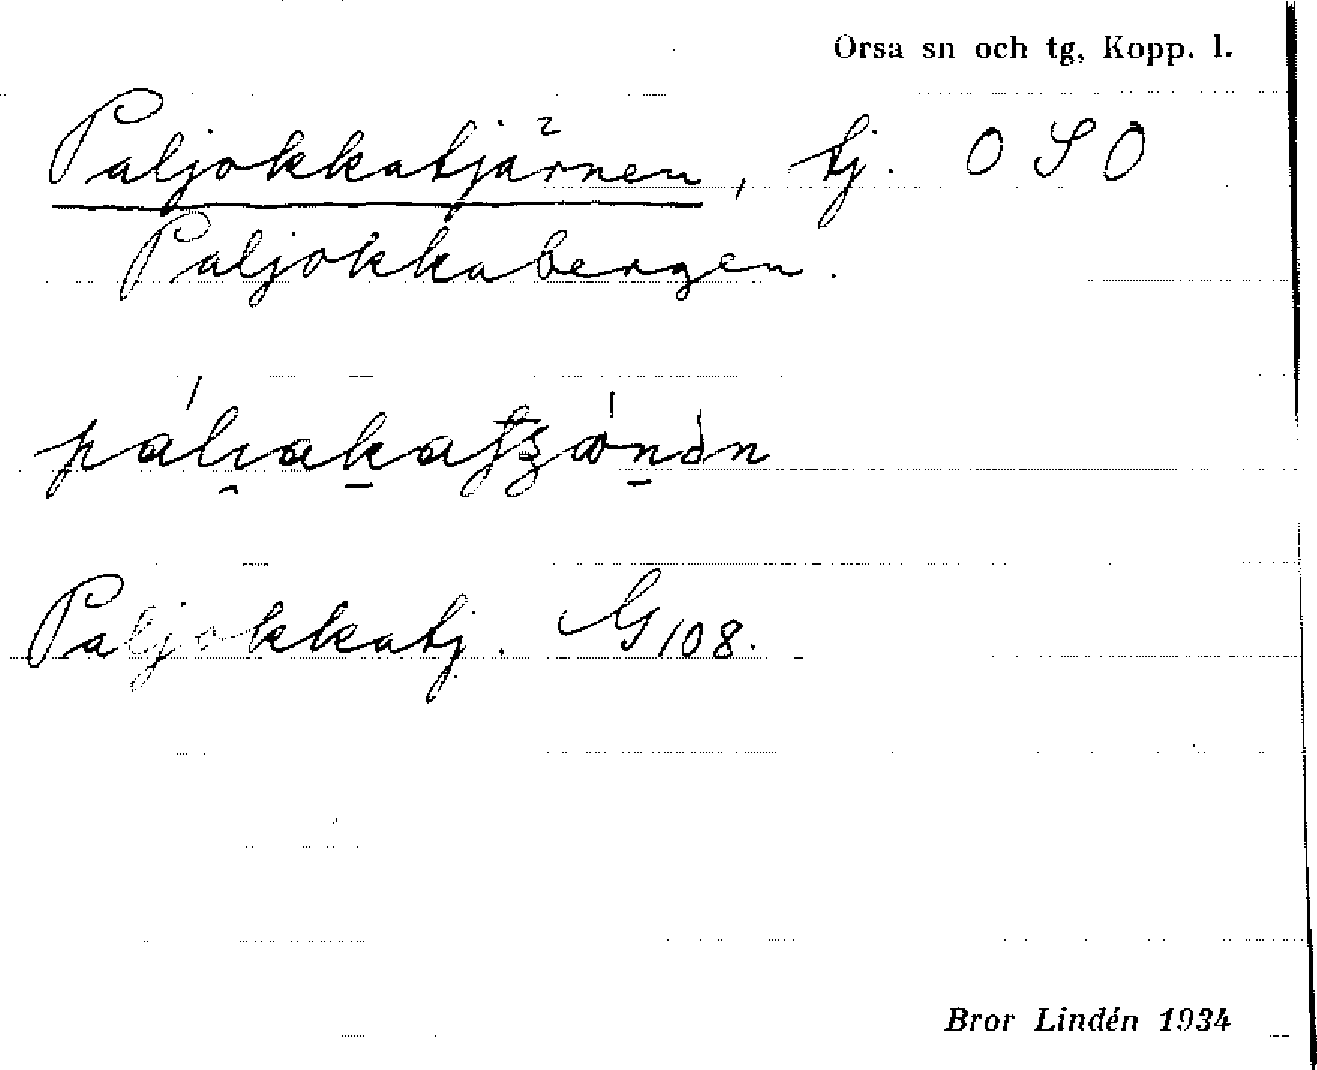 Orsa sn och tg, Kopp. l.
Paljokkatjärnen, tj. OSO
Paljokkabergen.
Paljokkatj. G 108.
Bror Lindén 1934